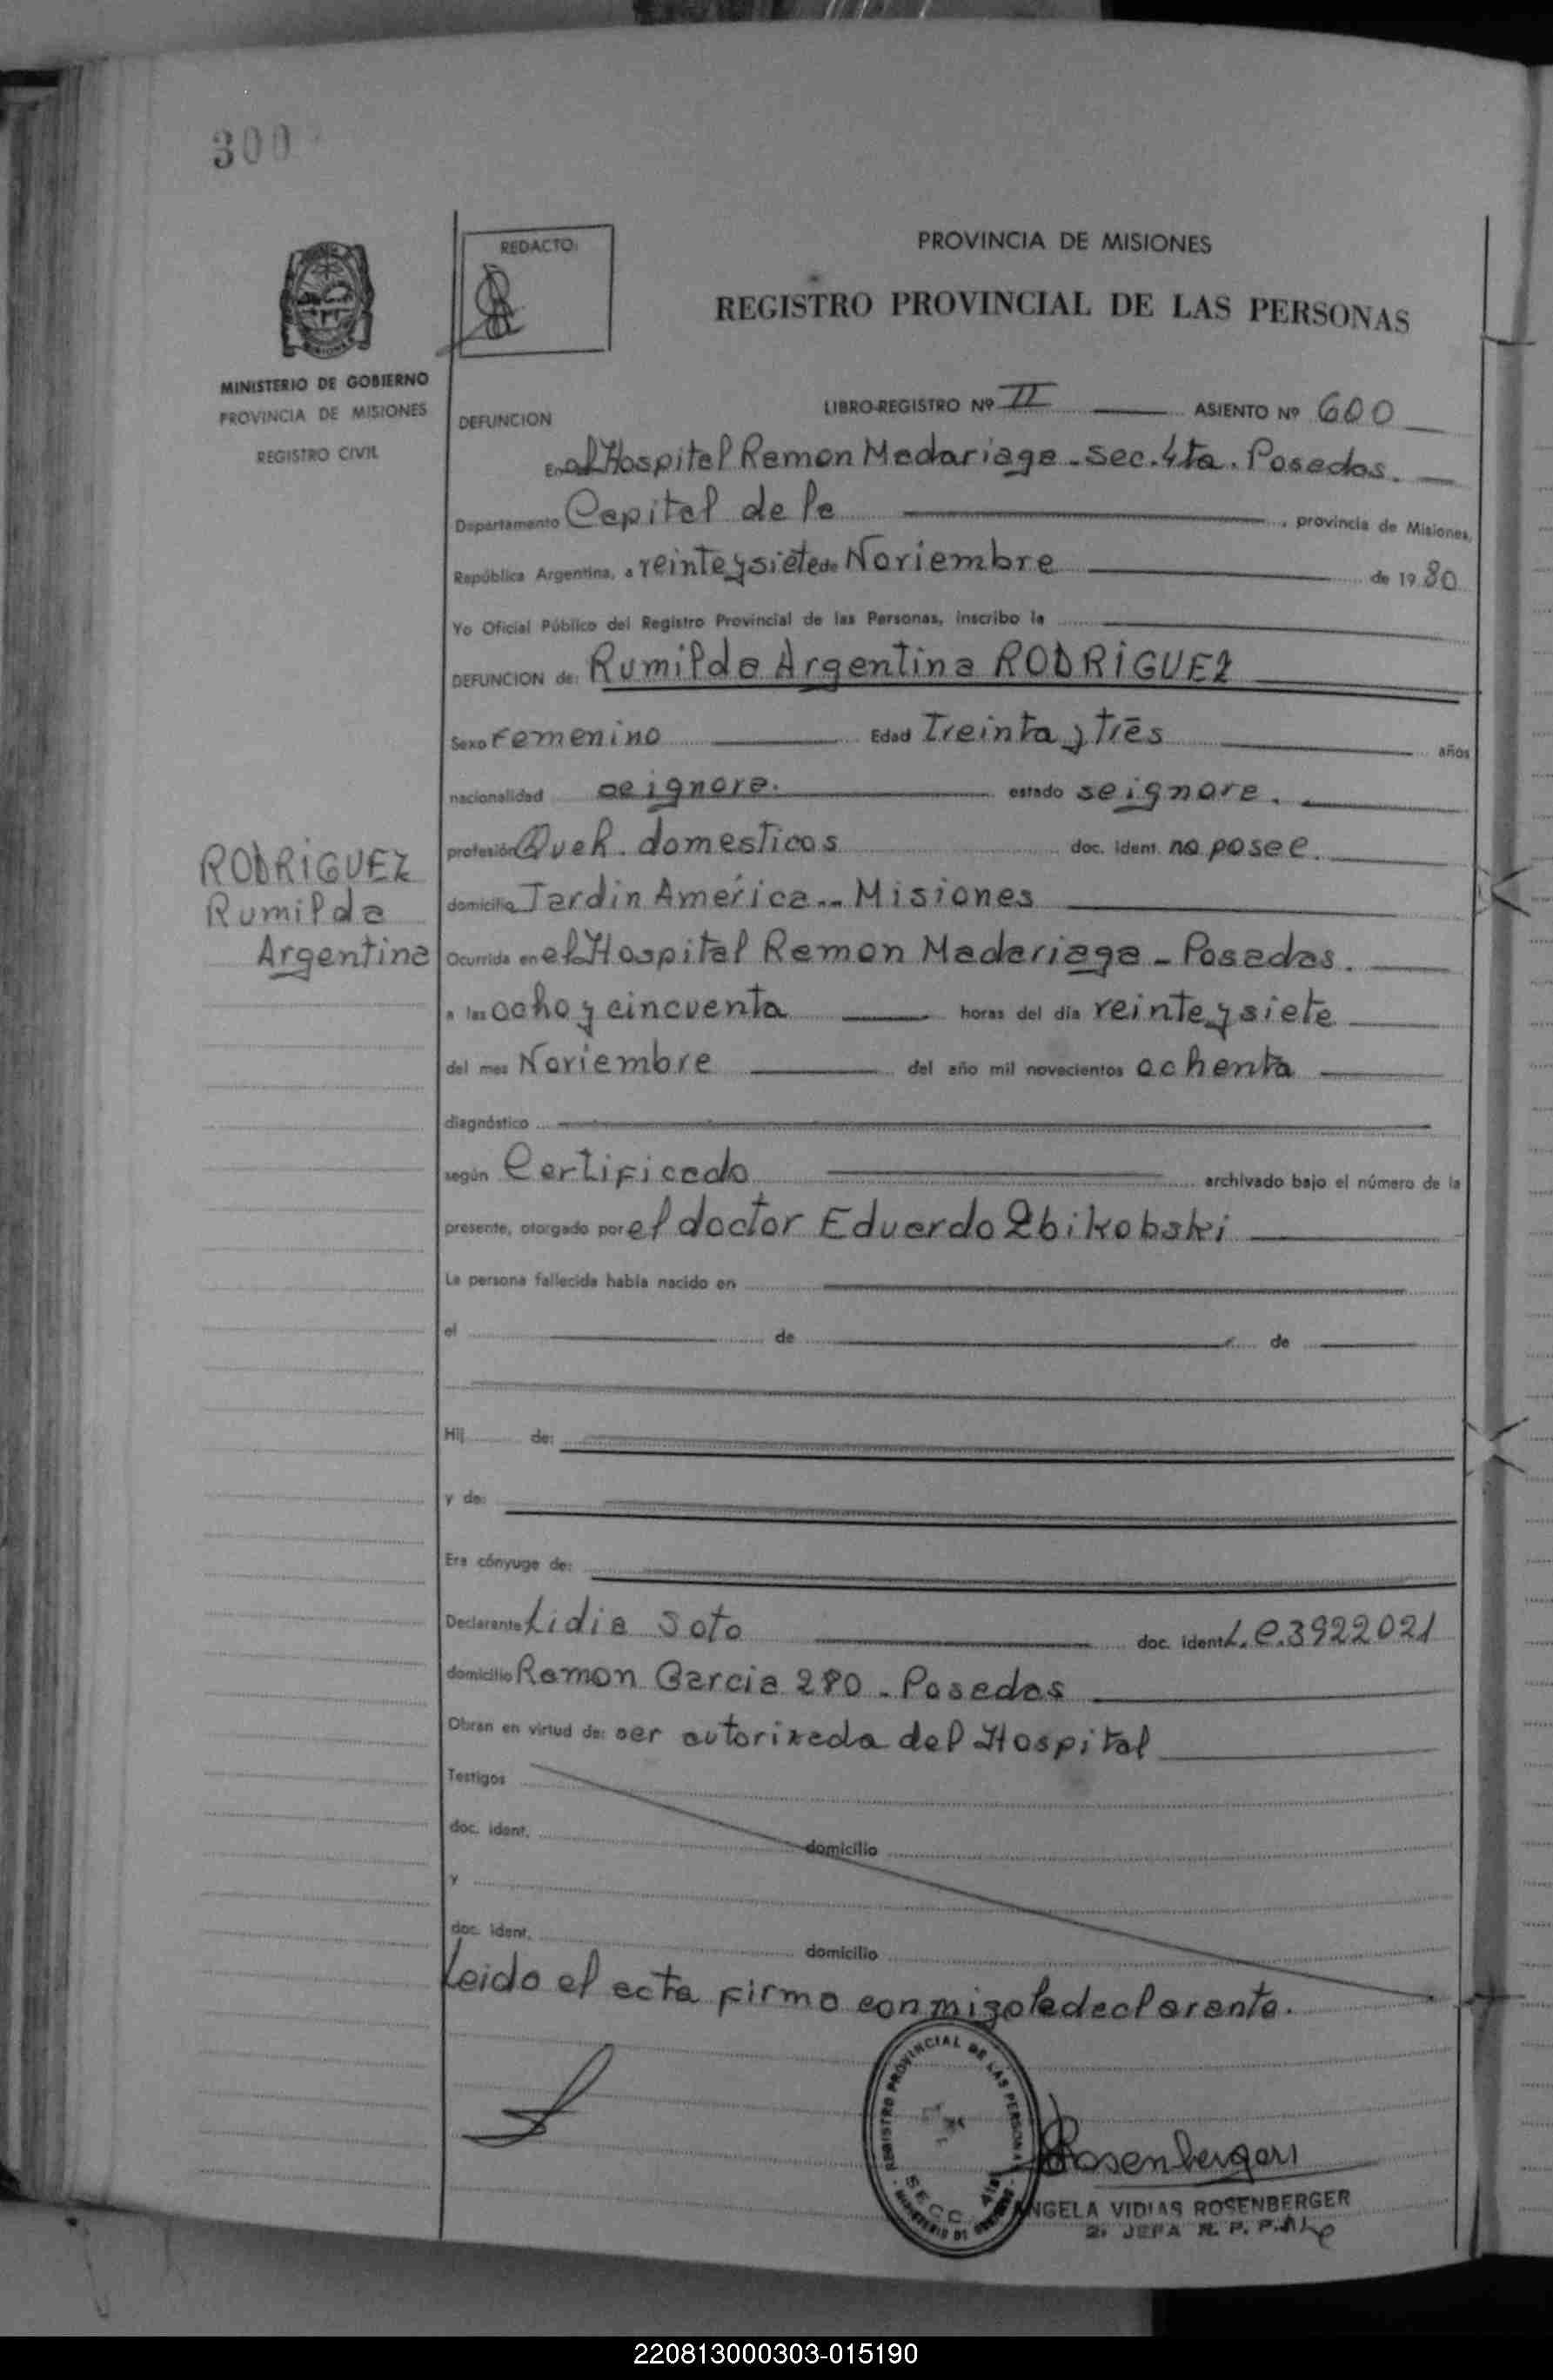 300
REDACTO:
PROVINCIA DE MISIONES
REGISTRO PROVINCIAL DE LAS PERSONAS
MINISTERIO DE GOBIERNO
PROVINCIA DE MISIONES
REGISTRO CIVIL
DEFUNCION LIBRO-REGISTRO Nº II ASIENTO Nº 600
En el Hospital Ramon Madariaga - Sec. 4ta. Posadas.
Departamento Capital de la , provincia de Misiones,
República Argentina, a veinte y siete de Noviembre de 1980
Yo Oficial Público del Registro Provincial de las Personas, inscribo la
DEFUNCION de: Rumilda Argentina RODRIGUEZ
Sexo Femenino Edad Treinta y tres años
nacionalidad se ignora. estado se ignora.
RODRIGUEZ
Rumilda
Argentina
profesión Queh. domesticos doc. ident. no posee.
domicilio Jardin América - Misiones
Ocurrida en el Hospital Ramon Madariaga - Posadas.
a las ocho y cincuenta horas del día veinte y siete
del mes Noviembre del año mil novecientos ochenta
diagnóstico
según Certificado archivado bajo el número de la
presente, otorgado por el doctor Eduardo Zbikobski
La persona fallecida había nacido en
el de de
Hij de:
y de:
Era cónyuge de:
Declarante Lidia Soto doc. ident. L.C. 3922021
domicilio Ramon Garcia 280 - Posadas
Obran en virtud de: ser autorizada del Hospital
Testigos
doc. ident. domicilio
y
doc. ident. domicilio
Leido el acta firma conmigo la declarante.
REGISTRO PROVINCIAL DE LAS PERSONAS
SECC. 4ta
MINISTERIO DE GOBIERNO
Rosenberger
ANGELA VIDIAS ROSENBERGER
2. JEFA R. P. P.
220813000303-015190